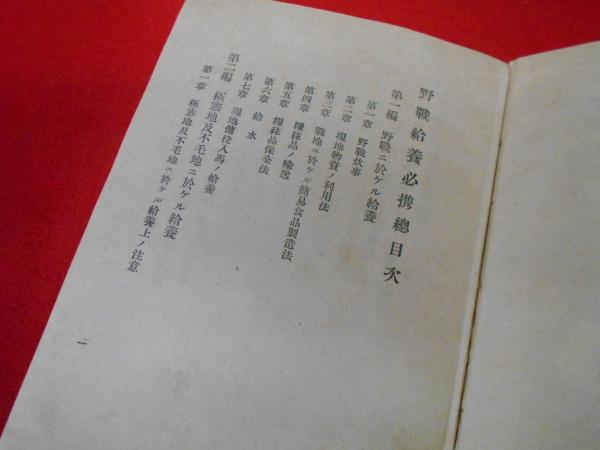 野戰給養必携總目次
第一編 野戰ニ於ケル給養
第一章 野戰炊事
第二章 現地物資ノ利用法
第三章 戰地ニ於ケル簡易食品製造法
第四章 糧秣品ノ輸送
第五章 糧秣品保全法
第六章 給水
第七章 現地傭役人馬ノ給養
第二編 極寒地及不毛地ニ於ケル給養
第一章 極寒地及不毛地ニ於ケル給養上ノ注意
一